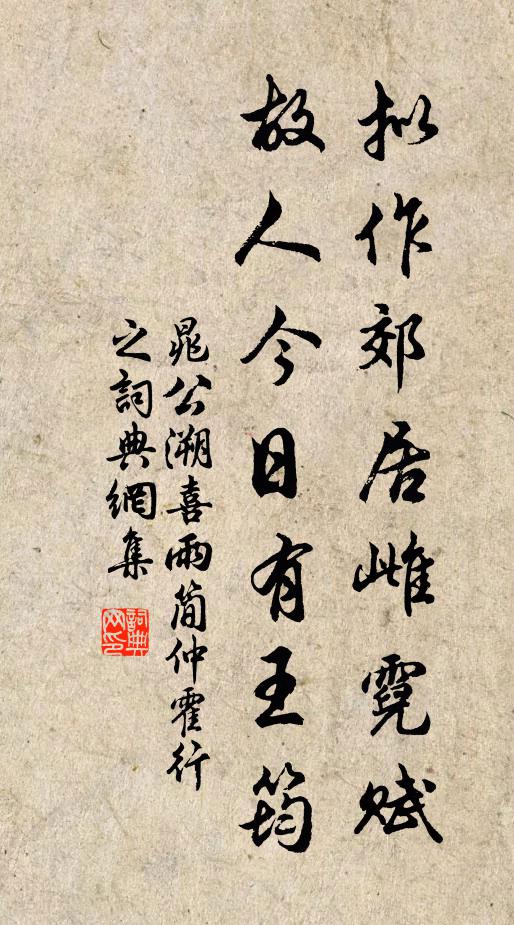 拟作郊居雌霓賦
故人今日有王筠
晁公溯喜雨简仲霍行
之詞典網集
詞典
网印